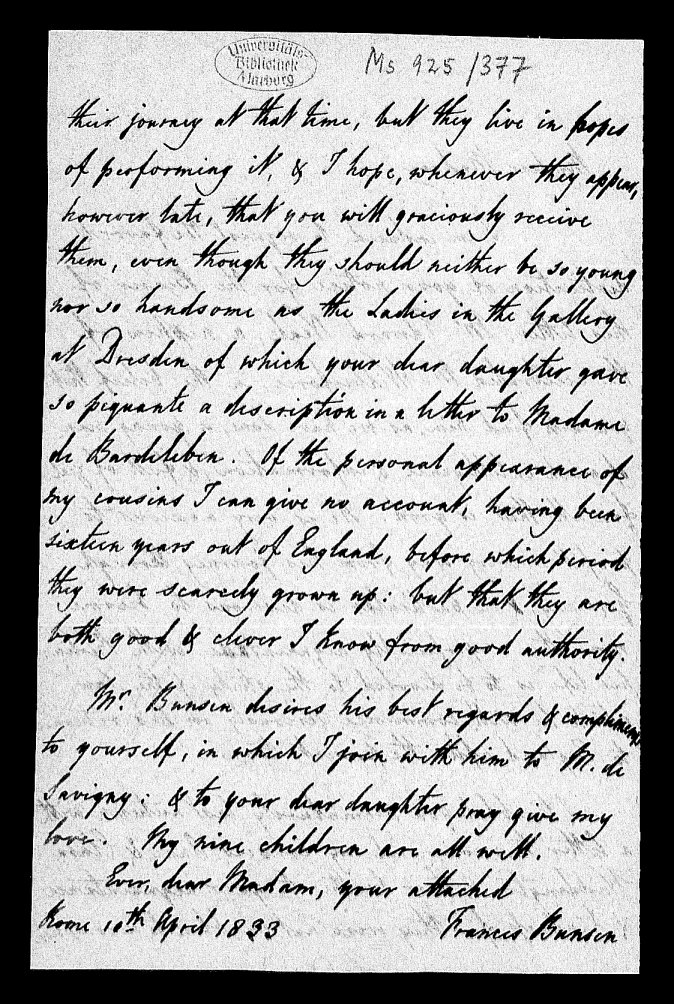 Universitäts-
Bibliothek
Marburg
Ms 925/377
their journey at that time, but they live in hopes
of performing it, & I hope, whenever they appear,
however late, that you will graciously receive
them, even though they should neither be so young
nor so handsome as the Ladies in the Gallery
at Dresden of which your dear daughter gave
so piquante a description in a letter to Madame
de Bardeleben. Of the personal appearance of
my cousins I can give no account, having been
sixteen years out of England, before which period
they were scarcely grown up: but that they are
both good & clever I know from good authority.
Mr. Bunsen desires his best regards & compliments
to yourself, in which I join with him to M. de
Savigny: & to your dear daughter pray give my
love. My nine children are all well.
Ever, dear Madam, your attached
Rome 10th April 1833 Frances Bunsen